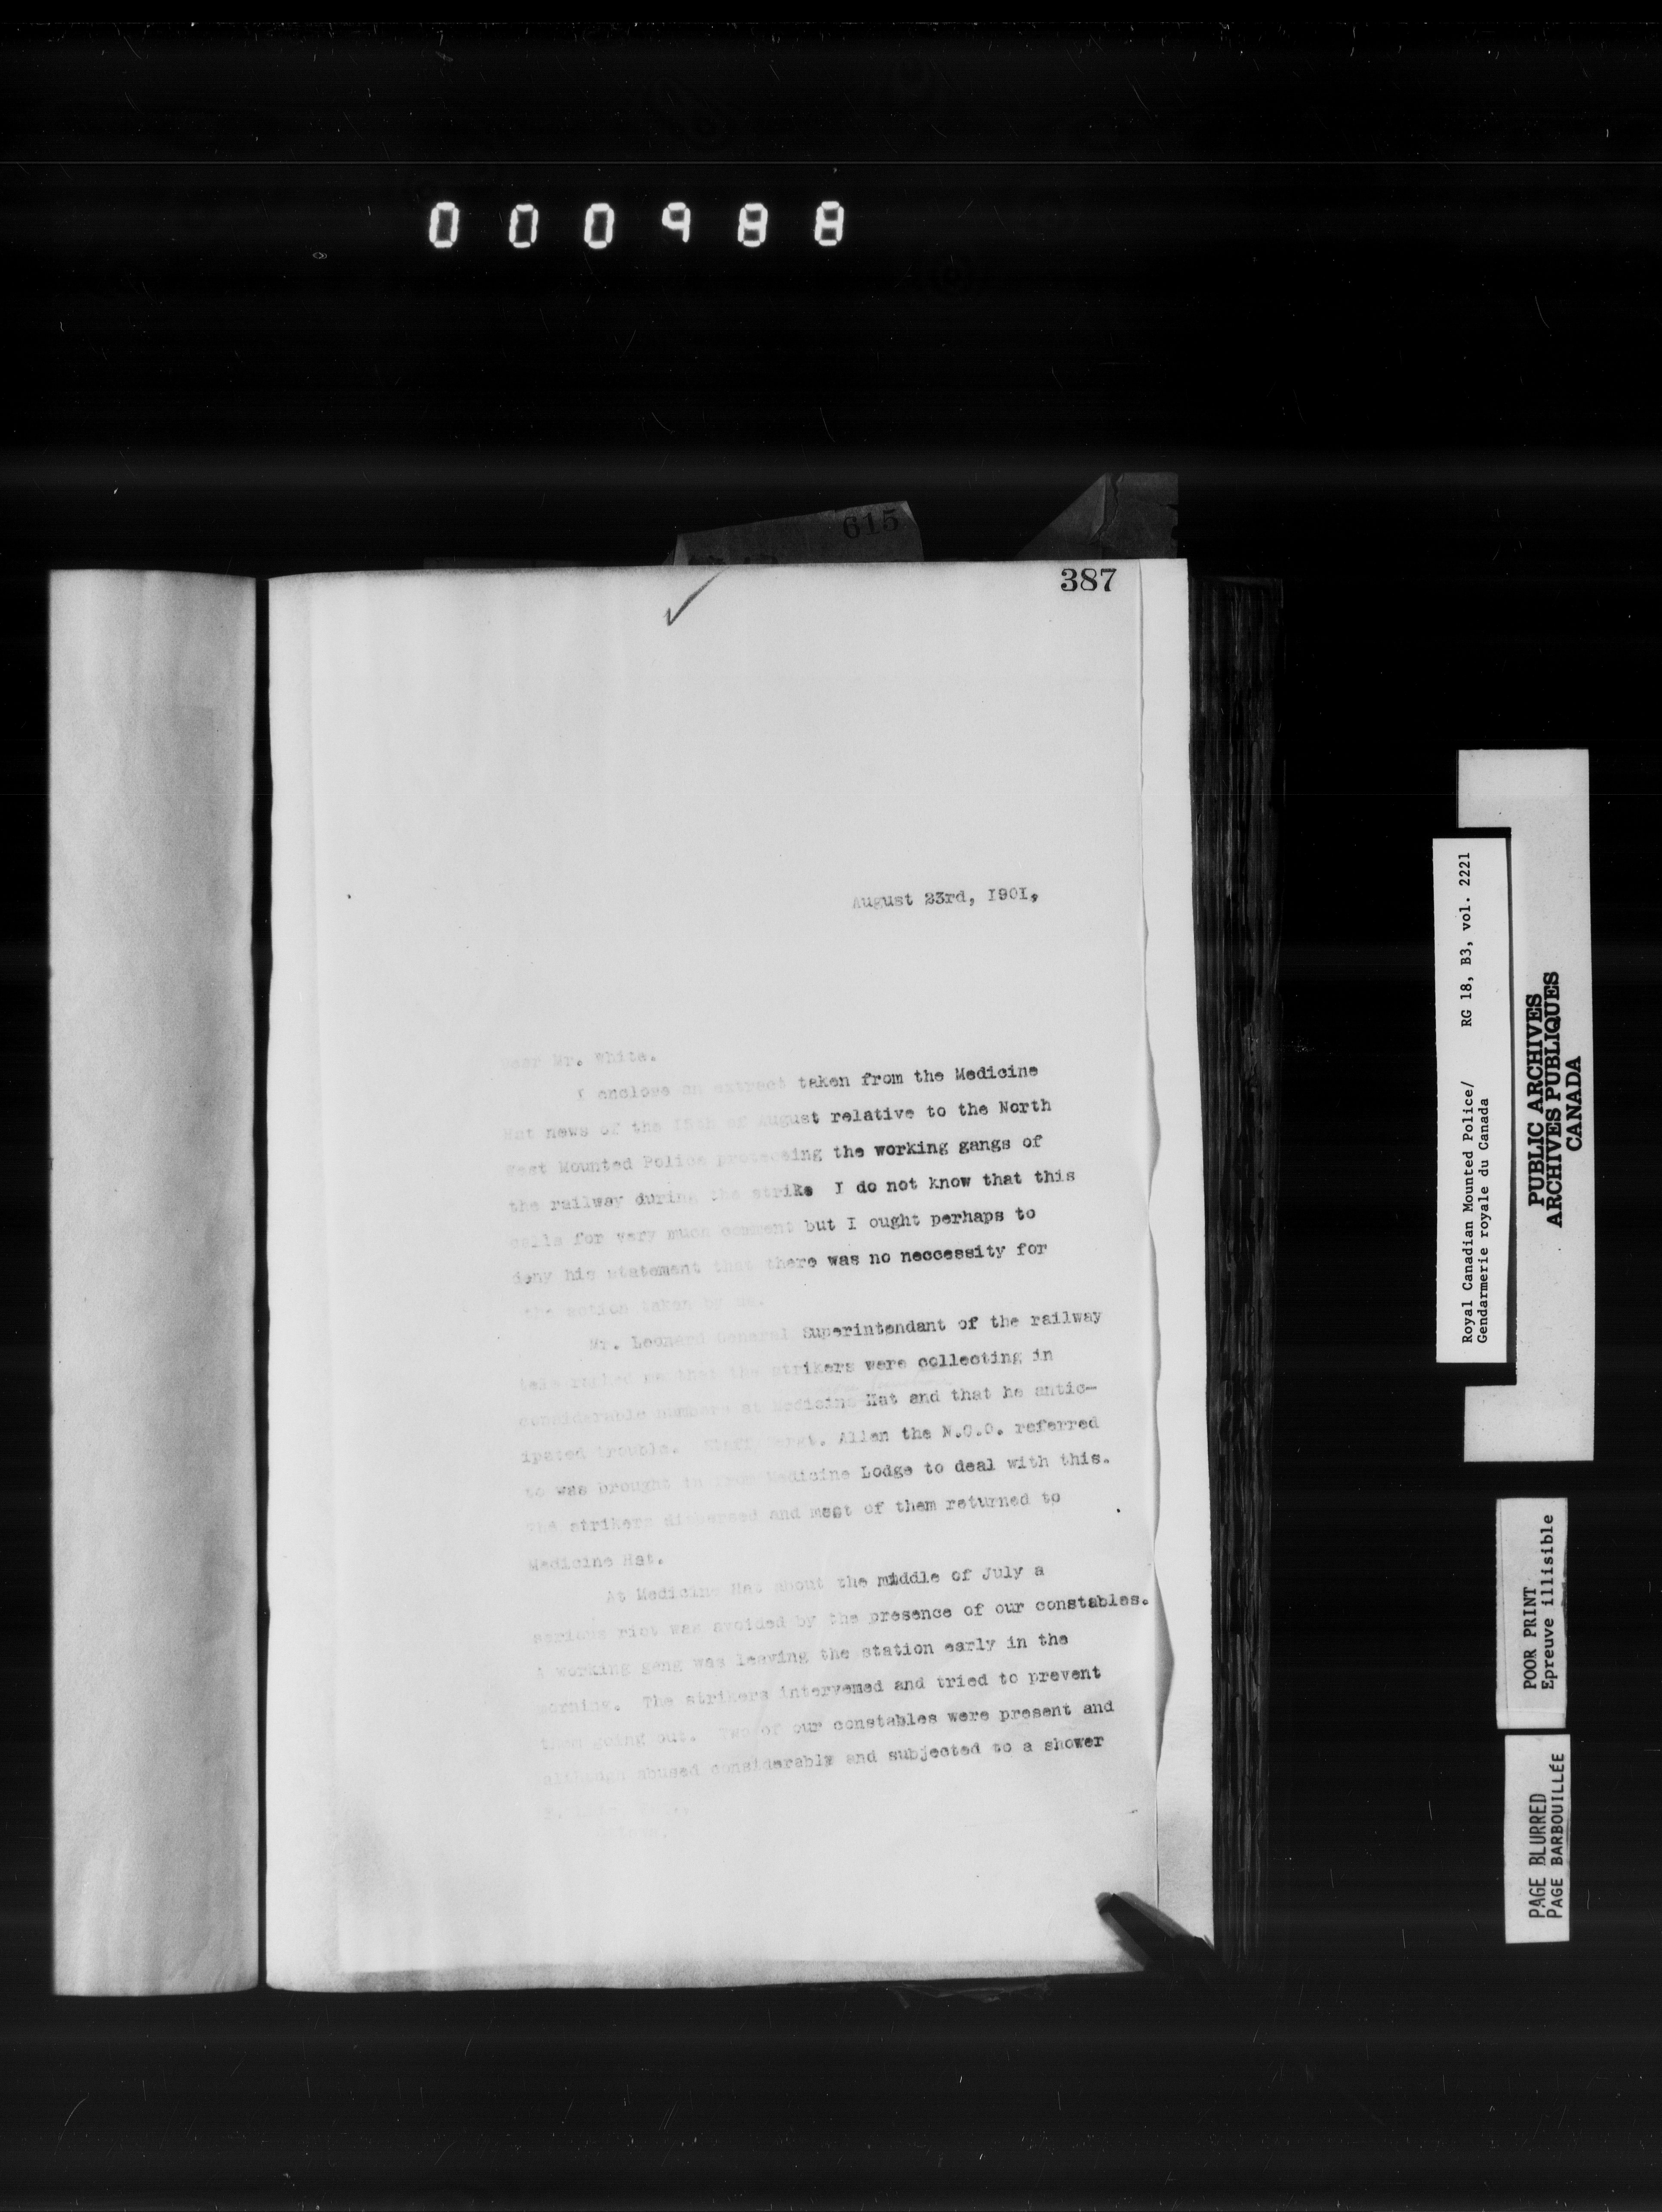 000988
615
387
August 23rd, 1901,
Dear Mr. White.
I enclose an extract taken from the Medicine
Hat news of the 15th of August relative to the North
West Mounted Police protecting the working gangs of
the railway during the strike I do not know that this
calls for very much comment but I ought perhaps to
deny his statement that there was no neccessity for
the action taken by me.
Mr. Leonard General Superintendant of the railway
that the strikers were collecting in
considerable numbers at Medicine Hat and that he antic-
ipated trouble. Staff Sergt. Allen the N.C.O. referred
to was brought in from Medicine Lodge to deal with this.
The strikers dispersed and most of them returned to
Medicine Hat.
At Medicine Hat about the middle of July a
serious riot was avoided by the presence of our constables.
A working gang was leaving the station early in the
morning. The strikers intervemed and tried to prevent
them going out. Two of our constables were present and
although abused considerably and subjected to a shower
Royal Canadian Mounted Police/ RG 18, B3, vol. 2221
Gendarmerie royale du Canada
PUBLIC ARCHIVES
ARCHIVES PUBLIQUES
CANADA
POOR PRINT
Epreuve illisible
PAGE BLURRED
PAGE BARBOUILLÉE